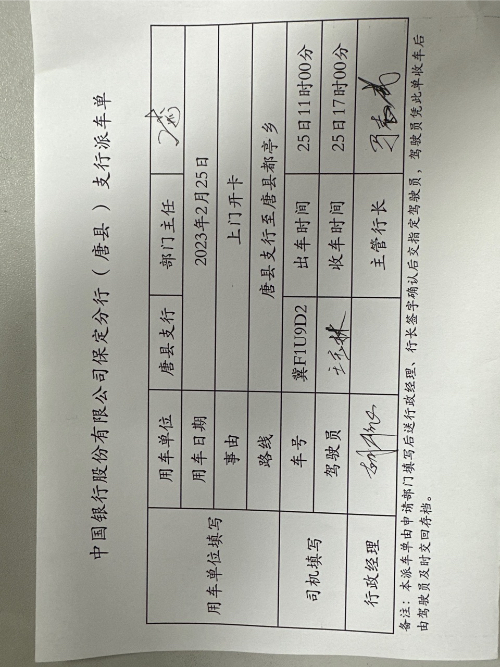 中国银行股份有限公司保定分行（ 唐县 ） 支行派车单
用车单位填写 用车单位 唐县支行 部门主任
用车日期 2023年2月25日
事由 上门开卡
路线 唐县支行至唐县都亭乡
司机填写 车号 冀F1U9D2 出车时间 25日11时00分
驾驶员 收车时间 25日17时00分
行政经理 主管行长
备注：本派车单由申请部门填写后送行政经理、行长签字确认后交指定驾驶员，驾驶员凭此单收车后
由驾驶员及时交回存档。